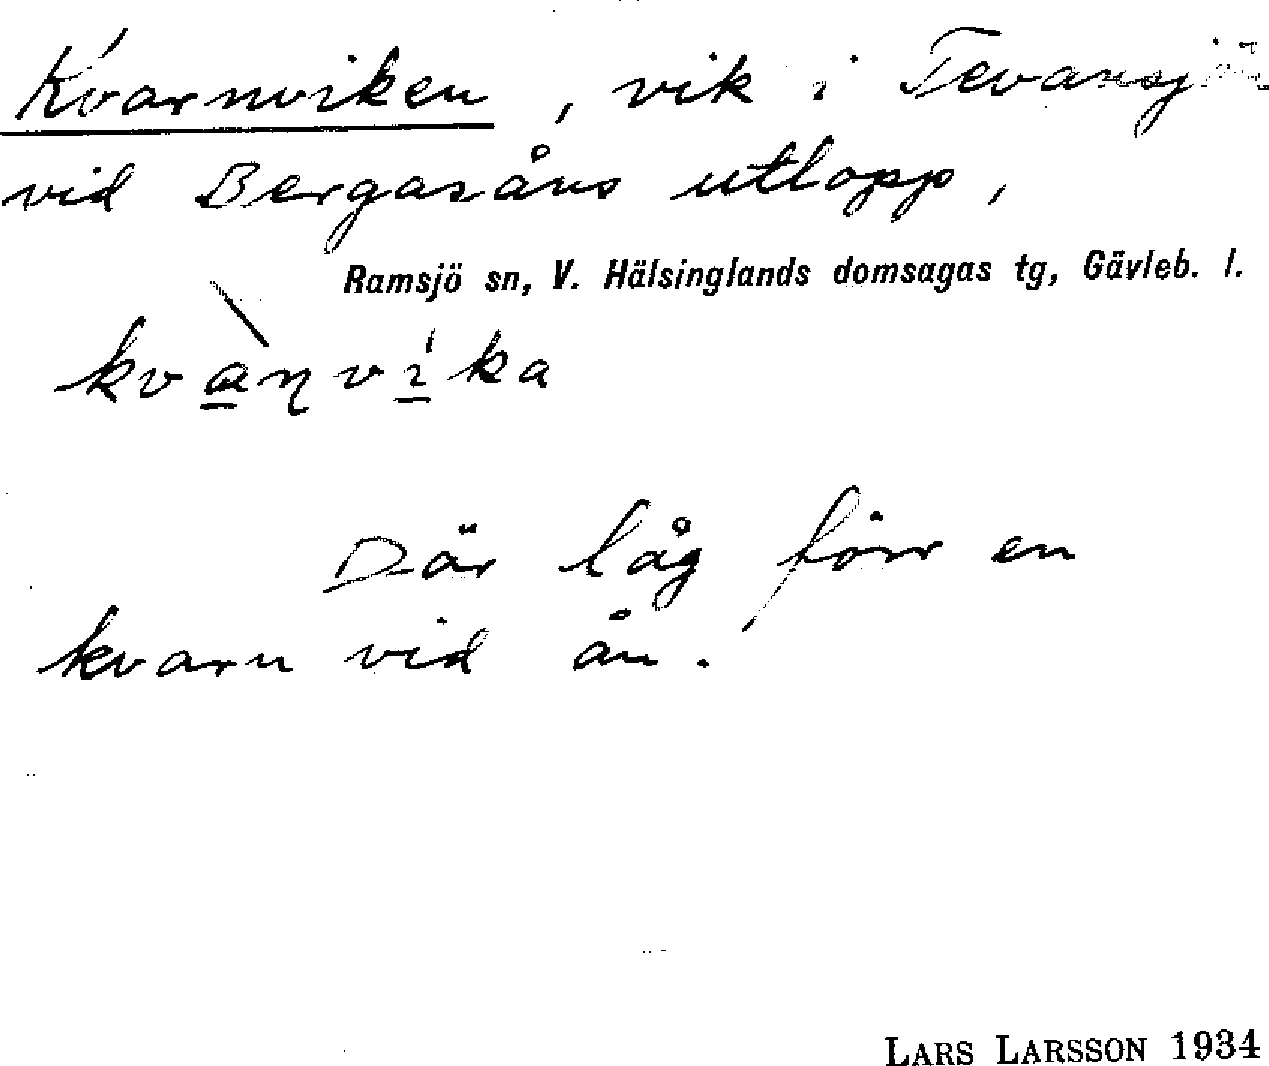 Kvarnviken, vik i Tevansjön
vid Bergasåns utlopp,
Ramsjö sn, V. Hälsinglands domsagas tg, Gävleb. l.
kvànvíka
Där låg förr en
kvarn vid ån.
LARS LARSSON 1934